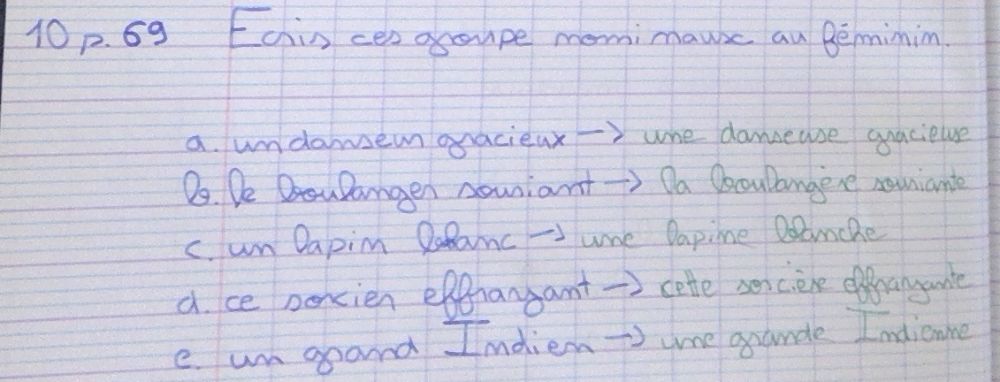 10 p. 69 Ecris ces groupe nominaux au féminin.
a. un danseur gracieux → une danseuse gracieuse
b. le boulanger souriant → la boulangère souriante
c. un lapin blanc → une lapine blanche
d. ce sorcier effrayant → cette sorcière effrayante
e. un grand Indien → une grande Indienne